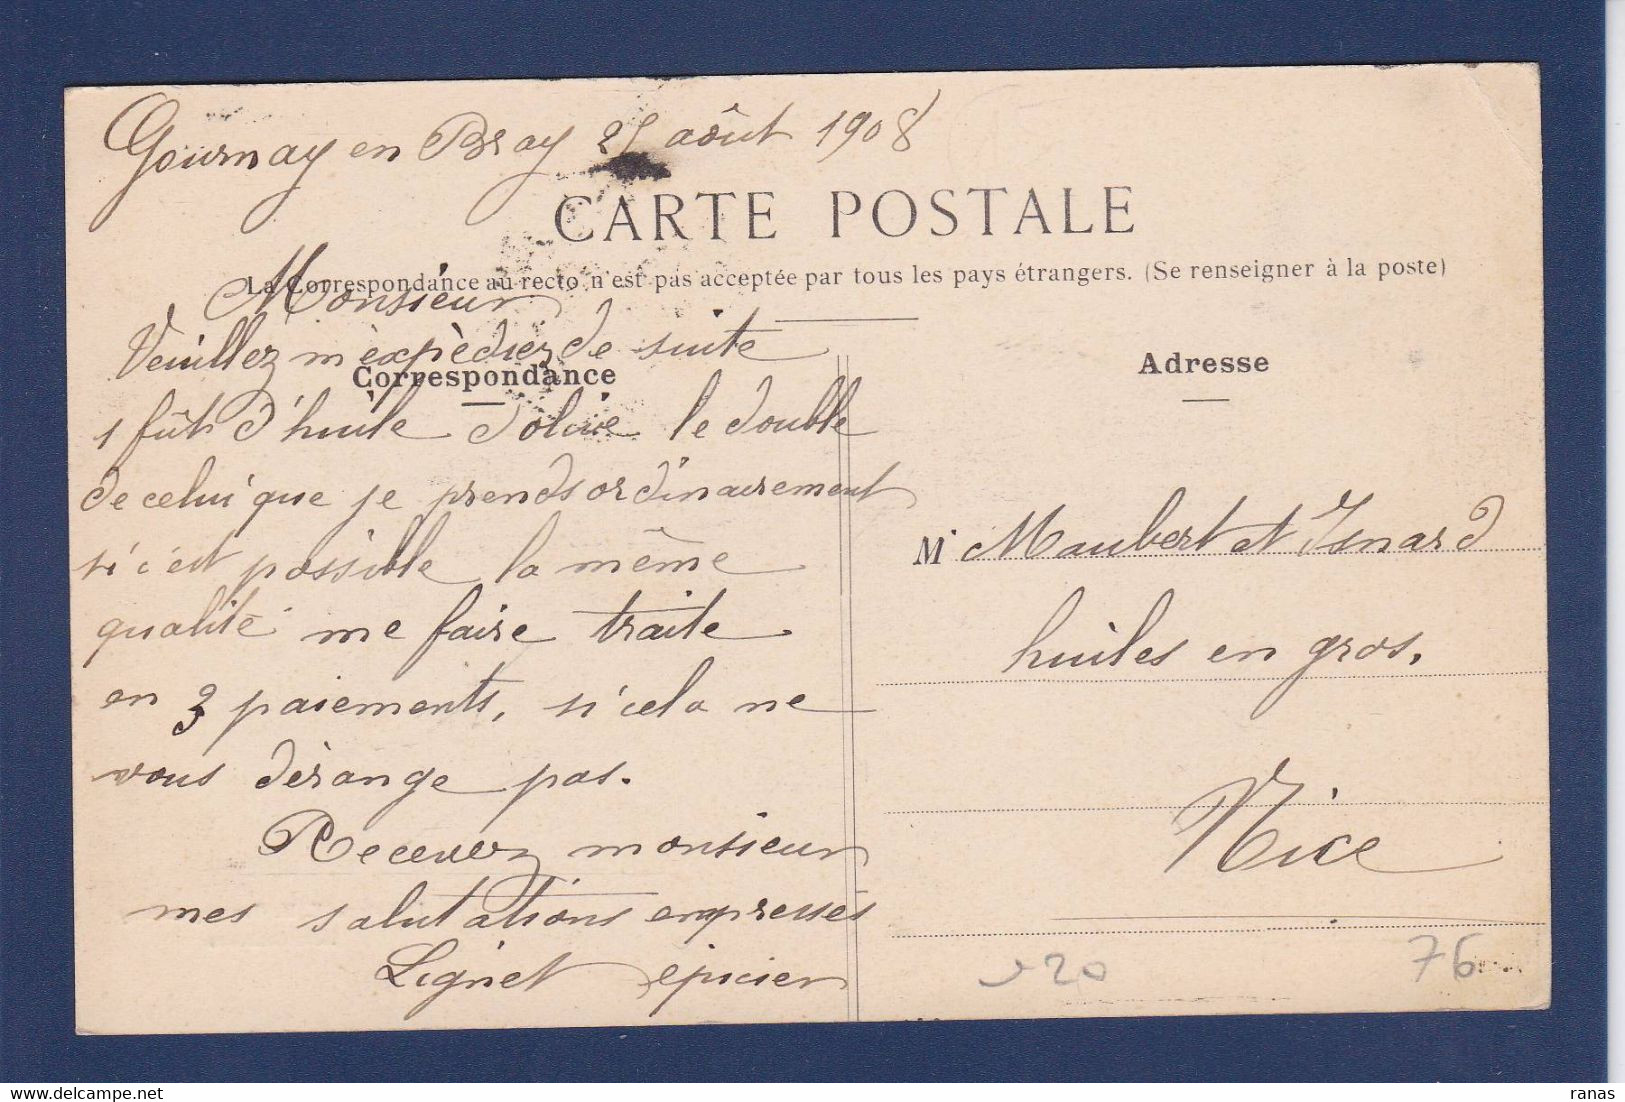 Gournay en Bray 25 août 1908
CARTE POSTALE
La Correspondance au recto n'est pas acceptée par tous les pays étrangers. (Se renseigner à la poste)
Monsieur
Veuillez m'expèdiez de suite
Correspondance
1 fût d'huile d'olive le double
de celui que je prends ordinairement
si c'est possible la même
qualité me faire traite
en 3 paiements, si cela ne
vous dèrange pas.
Recevez monsieur
mes salutations empressés
Lignet épicier
Adresse
M Maubert et Isnard
huiles en gros.
Nice
20
76
ranas